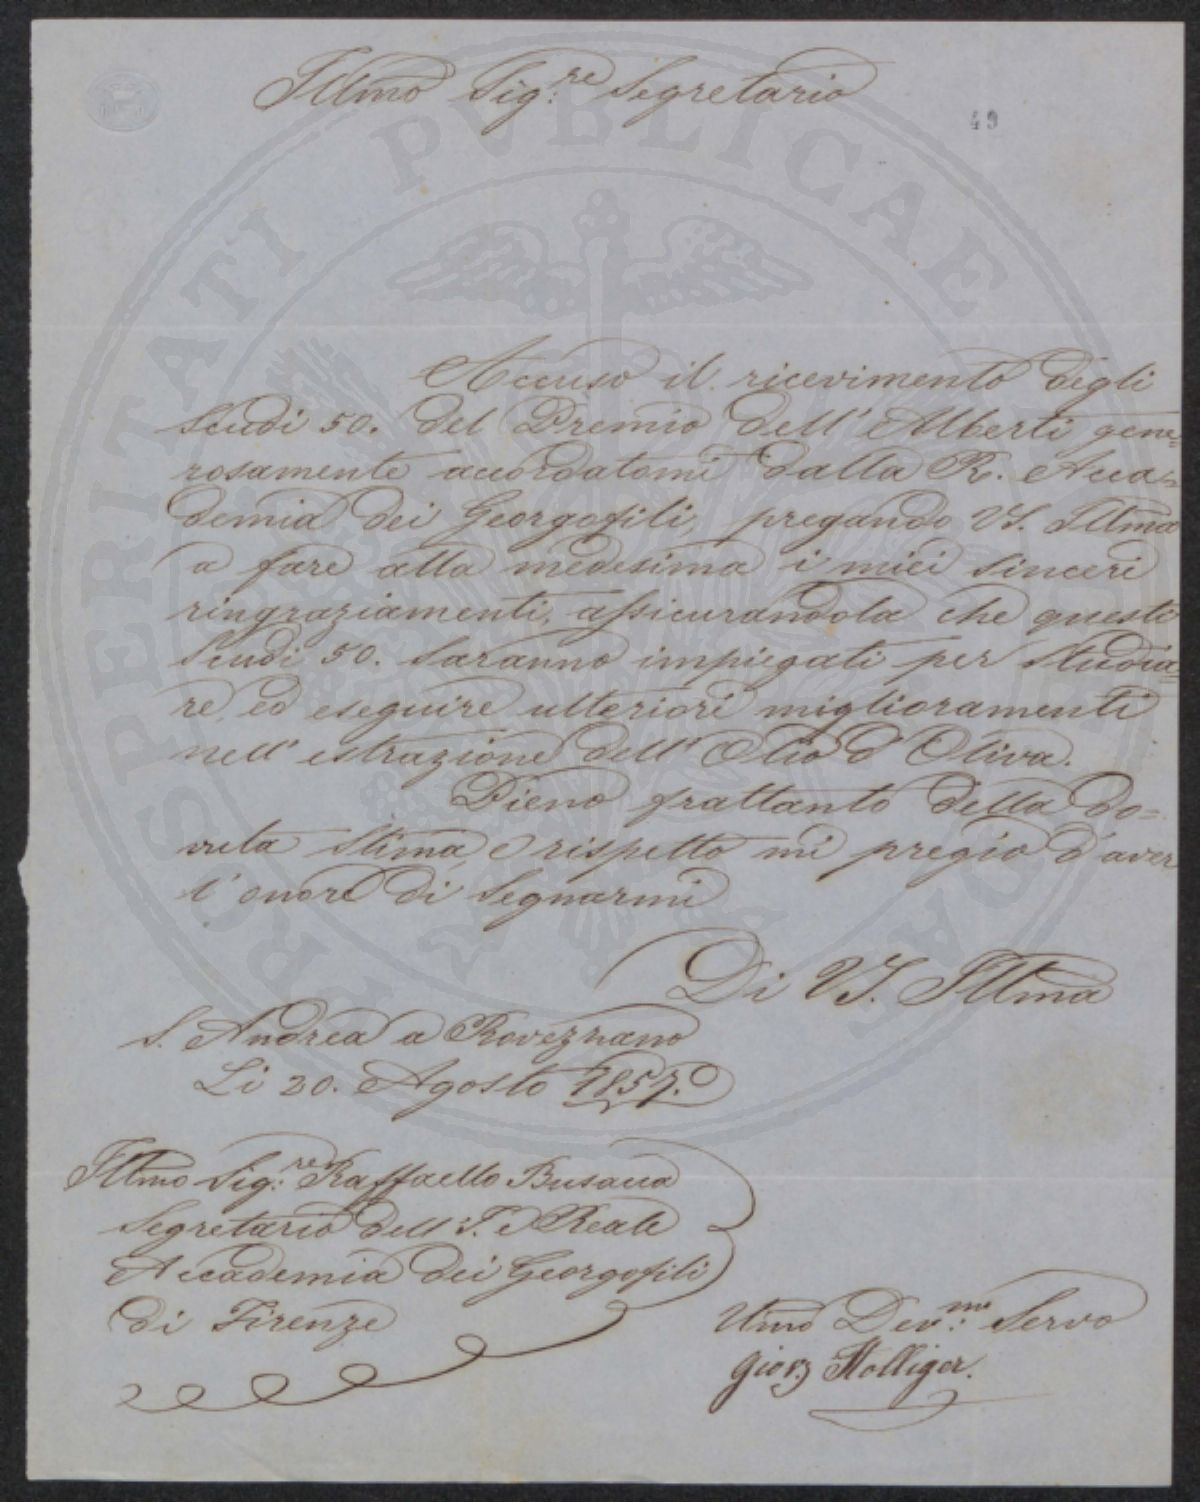 Illmo Sig:re Segretario
49
Accuso il ricevimento degli
Scudi 50. del Premio dell' Alberti gene=
rosamente accordatomi dalla R. Acca=
demia dei Georgofili, pregando VS. Illma
a fare alla medesima i miei sinceri
ringraziamenti, assicurandola che questi
Scudi 50. saranno impiegati per studia=
re, ed eseguire ulteriori miglioramenti
nell' estrazione dell' Olio d' Oliva.
Pieno frattanto della do=
vuta stima, e rispetto mi pregio d'aver
l' onore di segnarmi
Di VS. Illma
S. Andrea a Rovezzano
Li 20. Agosto 1857.
Illmo Sig:re Raffaello Busacca
Segretario dell' I. e Reale
Accademia dei Georgofili
di Firenze
Umo Dev:mo Servo
PROSPERITATI PUBLICAE